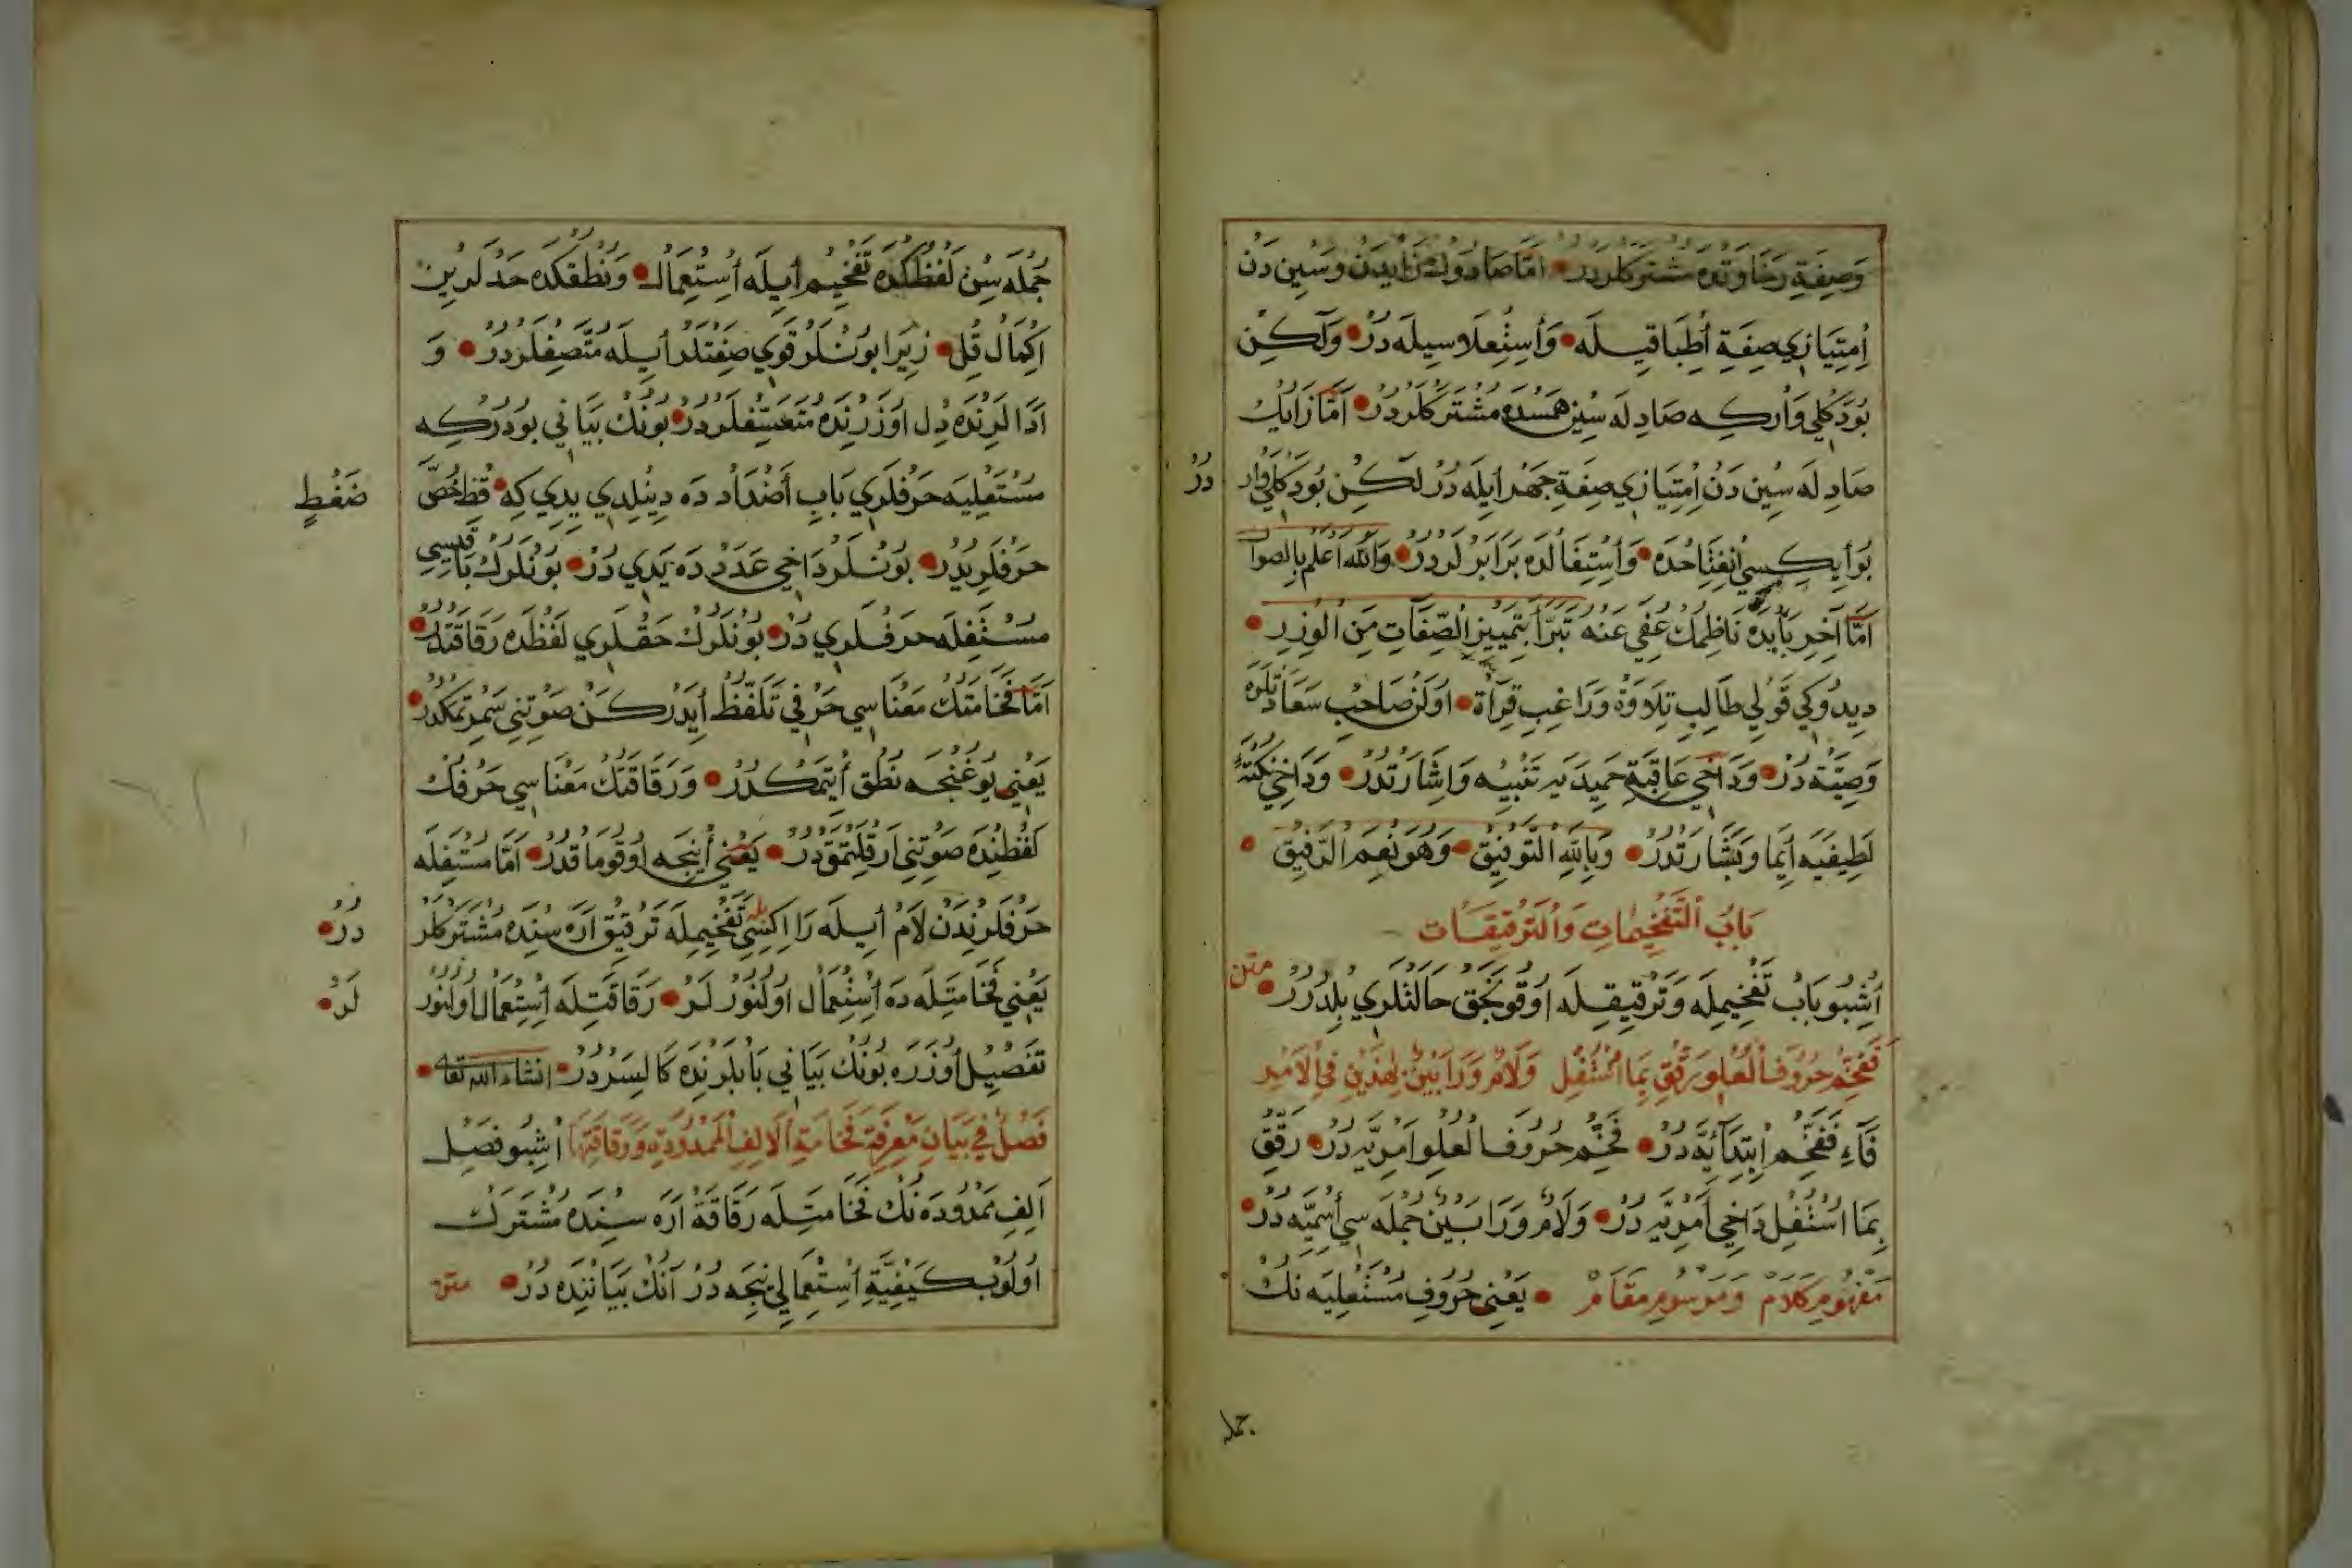 وَصِفَةِ رَخَاوَتْدَه مُشْتَرَكْلَرْدُرْ اَمَّا صَادُوكْ زَايِدَنْ وَسِين دَنْ
اِمْتِيَازِي صِفَةِ اُطْبَاقِيلَه وَاُسْتِعْلَاسِيلَه دُرْ وَلَكِنْ
بُودَكْلِي وَارْكِه صَادِلَه سِين هَمْسَدَه مُشْتَرَكْلَرْدُرْ اَمَّا زَايُكْ
صَادِلَه سِين دَنْ اِمْتِيَازِي صِفَةِ جَهْر اُيلَه دُرْ لَكِنْ بُودَكْلِي وَار
دُرْ
بُو اُيكِيسِي اُنْفِتَاحْدَه وَاُسْتِفَالْدَه بَرَابَرْلَرْدُرْ وَاللّٰه اَعْلَم بِالصواب
اَمَّا آخِرِ بَابْدَه نَاظِمُكْ عُفِيَ عَنْهُ تَبَرَّأْ بِتَمْيِيزِ الصِّفَاتِ مِنَ الْوِزْرِ
دِيدُوكِي قَوْلِي طَالِبِ تِلَاوَةْ وَرَاغِبِ قِرَاةْ اُولَنْ صَاحِبِ سَعَادَتْلَرَه
وَصِيَّتْدُرْ وَدَاخِي عَاقِبَةِ حَمِيدَيه تَنْبِيه وَاِشَارَتْدُرْ وَدَاخِي نُكْتَهءِ
لَطِيفَيه اِيمَا وَبَشَارَتْدُرْ وَبِاللّٰهِ التَّوْفِيقْ وَهُوَ نِعْمَ الرَّفِيقْ
بَابُ التَّفْخِيمَاتِ وَالتَّرْقِيقَات
اُشْبُو بَابْ تَفْخِيمِلَه وَتَرْقِيقِلَه اُوقُونَجَقْ حَالَتْلَرِي بِلْدُرُرْ متن
فَفَخِّمْ حُرُوفَ الْعُلْوِ رَقِّقْ بِمَا اسْتُفِلْ وَلَامْ وَرَا بَيْنْ لِهٰذَيْنِ فِي الْاَمْرِ
فَاءِ فَفَخِّمْ اُبْتِدَائِيَّه دُرْ فَخِّمْ حُرُوفَ الْعُلْوِ اَمْرِيَّه دُرْ رَقِّقْ
بِمَا اسْتُفِلْ دَاخِي اَمْرِيَّه دُرْ وَلَامْ وَرَا بَيْنْ جُمْلَه سِي اُسْمِيَّه دُرْ
مَفْهُومِ كَلَامْ وَمَوْسُومِ مَقَامْ يَعْنِي حُرُوفِ مُسْتَعْلِيَه نُكْ
جمله
جُمْلَه سِنْ لَفْظُكْدَه تَفْخِيم اُيلَه اُسْتِعْمَال وَنُطْقُكْدَه حَدْلَرِين
اِكْمَالْ قِلْ زِيرَا بُونْلَرْ قَوِي صِفَتْلَرْ اُيلَه مُتَّصِفْلَرْدُرْ وَ
اَدَالَرِنْدَه دِل اُوزَرِنْدَه مُتَعَسِّفْلَرْدُرْ بُونُكْ بَيَانِي بُودُرْكِه
مُسْتَعْلِيَه حَرْفْلَرِي بَابِ اَضْدَاد دَه دِينِلْدِي يدِي كِه قِظْ خُصَّ
ضَغْطٍ
حَرْفْلَرِيدُرْ بُونْلَرْ دَاخِي عَدَدْ دَه يَدِي دُرْ بُونْلَرُكْ بَاقِيسِي
مُسْتَفِلَه حَرْفْلَرِي دُرْ بُونْلَرُكْ حَقْلَرِي لَفْظْدَه رَقَاقَتْدُرْ
اَمَّا فَخَامَتُكْ مَعْنَاسِي حَرْفِي تَلَفُّظْ اُيدَرْكَنْ صَوْتِنِي سَمُرْتمَكْدُرْ
يَعْنِي يُوغُنْجَه نُطْق اُيتْمَكْدُرْ وَرَقَاقَتُكْ مَعْنَاسِي حَرْفُكْ
لَفْظِنْدَه صَوْتِنِي اَرِقْلَتْمَقْدُرْ يَعْنِي اُينْجَه اُوقُومَاقْدُرْ اَمَّا مُسْتَفِلَه
حَرْفْلَرِنْدَنْ لَامْ اُيلَه رَا اِكِسِي تَفْخِيمِلَه تَرْقِيقْ اَرَه سِنْدَه مُشْتَرَكْلَر
دُرْ
يَعْنِي فَخَامَتِلَه دَه اُسْتِعْمَالْ اُولُنُورْلَرْ رَقَاقَتِلَه اُسْتِعْمَالْ اُولُنُور
لَرْ
تَفْصِيل اُوزَرَه بُونُكْ بَيَانِي بَابْلَرِنْدَه كَالِسَرْدُرْ انشاء الله تعالى
فَصْلٌ فِي بَيَانِ مَعْرِفَةِ فَخَامَةِ الْاَلِفِ الْمَمْدُودَةِ وَرَقَاقَتِهَا اُشْبُو فَصِل
اَلِفِ مَمْدُودَه نُكْ فَخَامَتِلَه رَقَاقَةْ اَرَه سِنْدَه مُشْتَرَكْ
اُولُوبْ كَيْفِيَّةِ اُسْتِعْمَالِي نِجَه دُرْ اَنُكْ بَيَانِنْدَه دُرْ متن